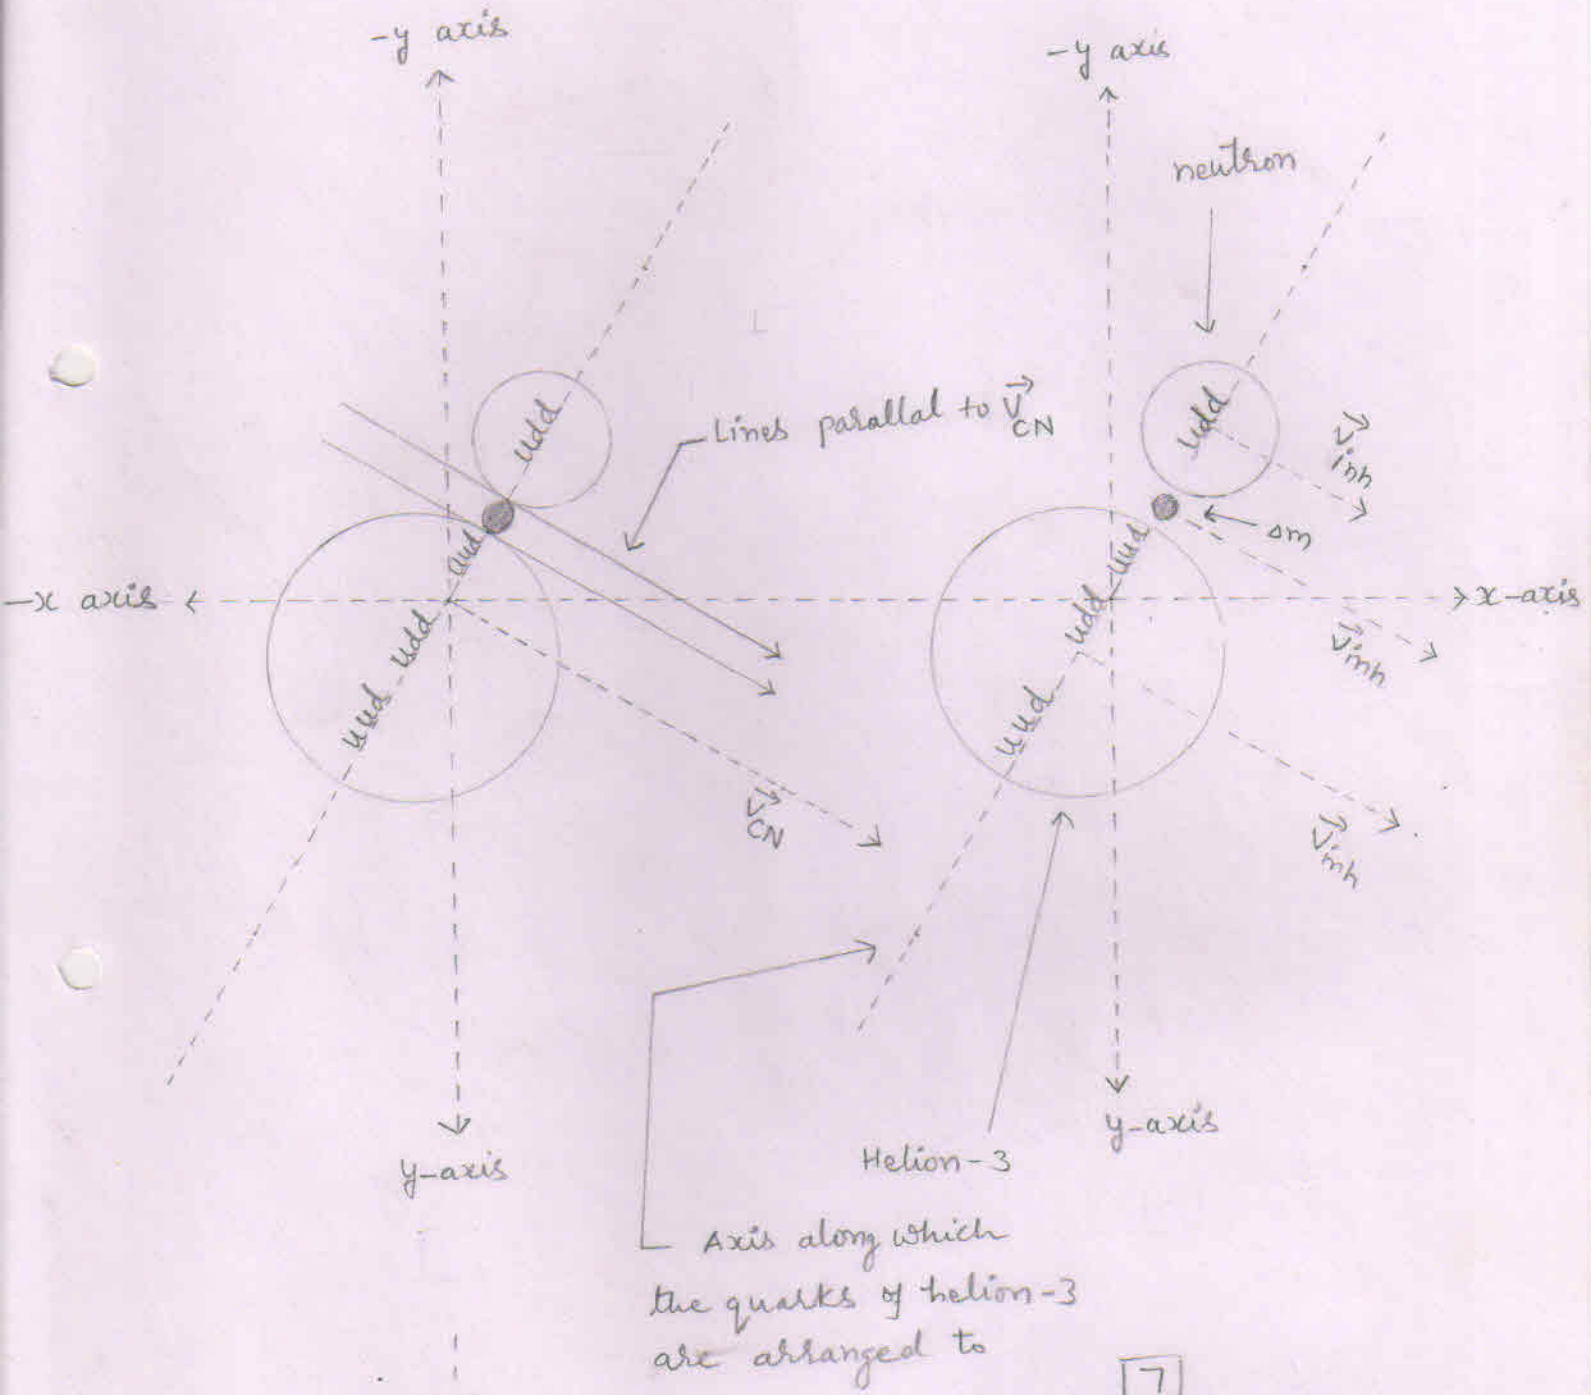 -y axis
udd
uud
udd
uud
Lines parallal to V⃗
CN
-x axis
V⃗
CN
y-axis
-y axis
neutron
udd
V⃗
inh
Δm
uud
udd
uud
x-axis
V⃗
inh
V⃗
inh
y-axis
Helion-3
Axis along which
the quarks of helion-3
are arranged to
7